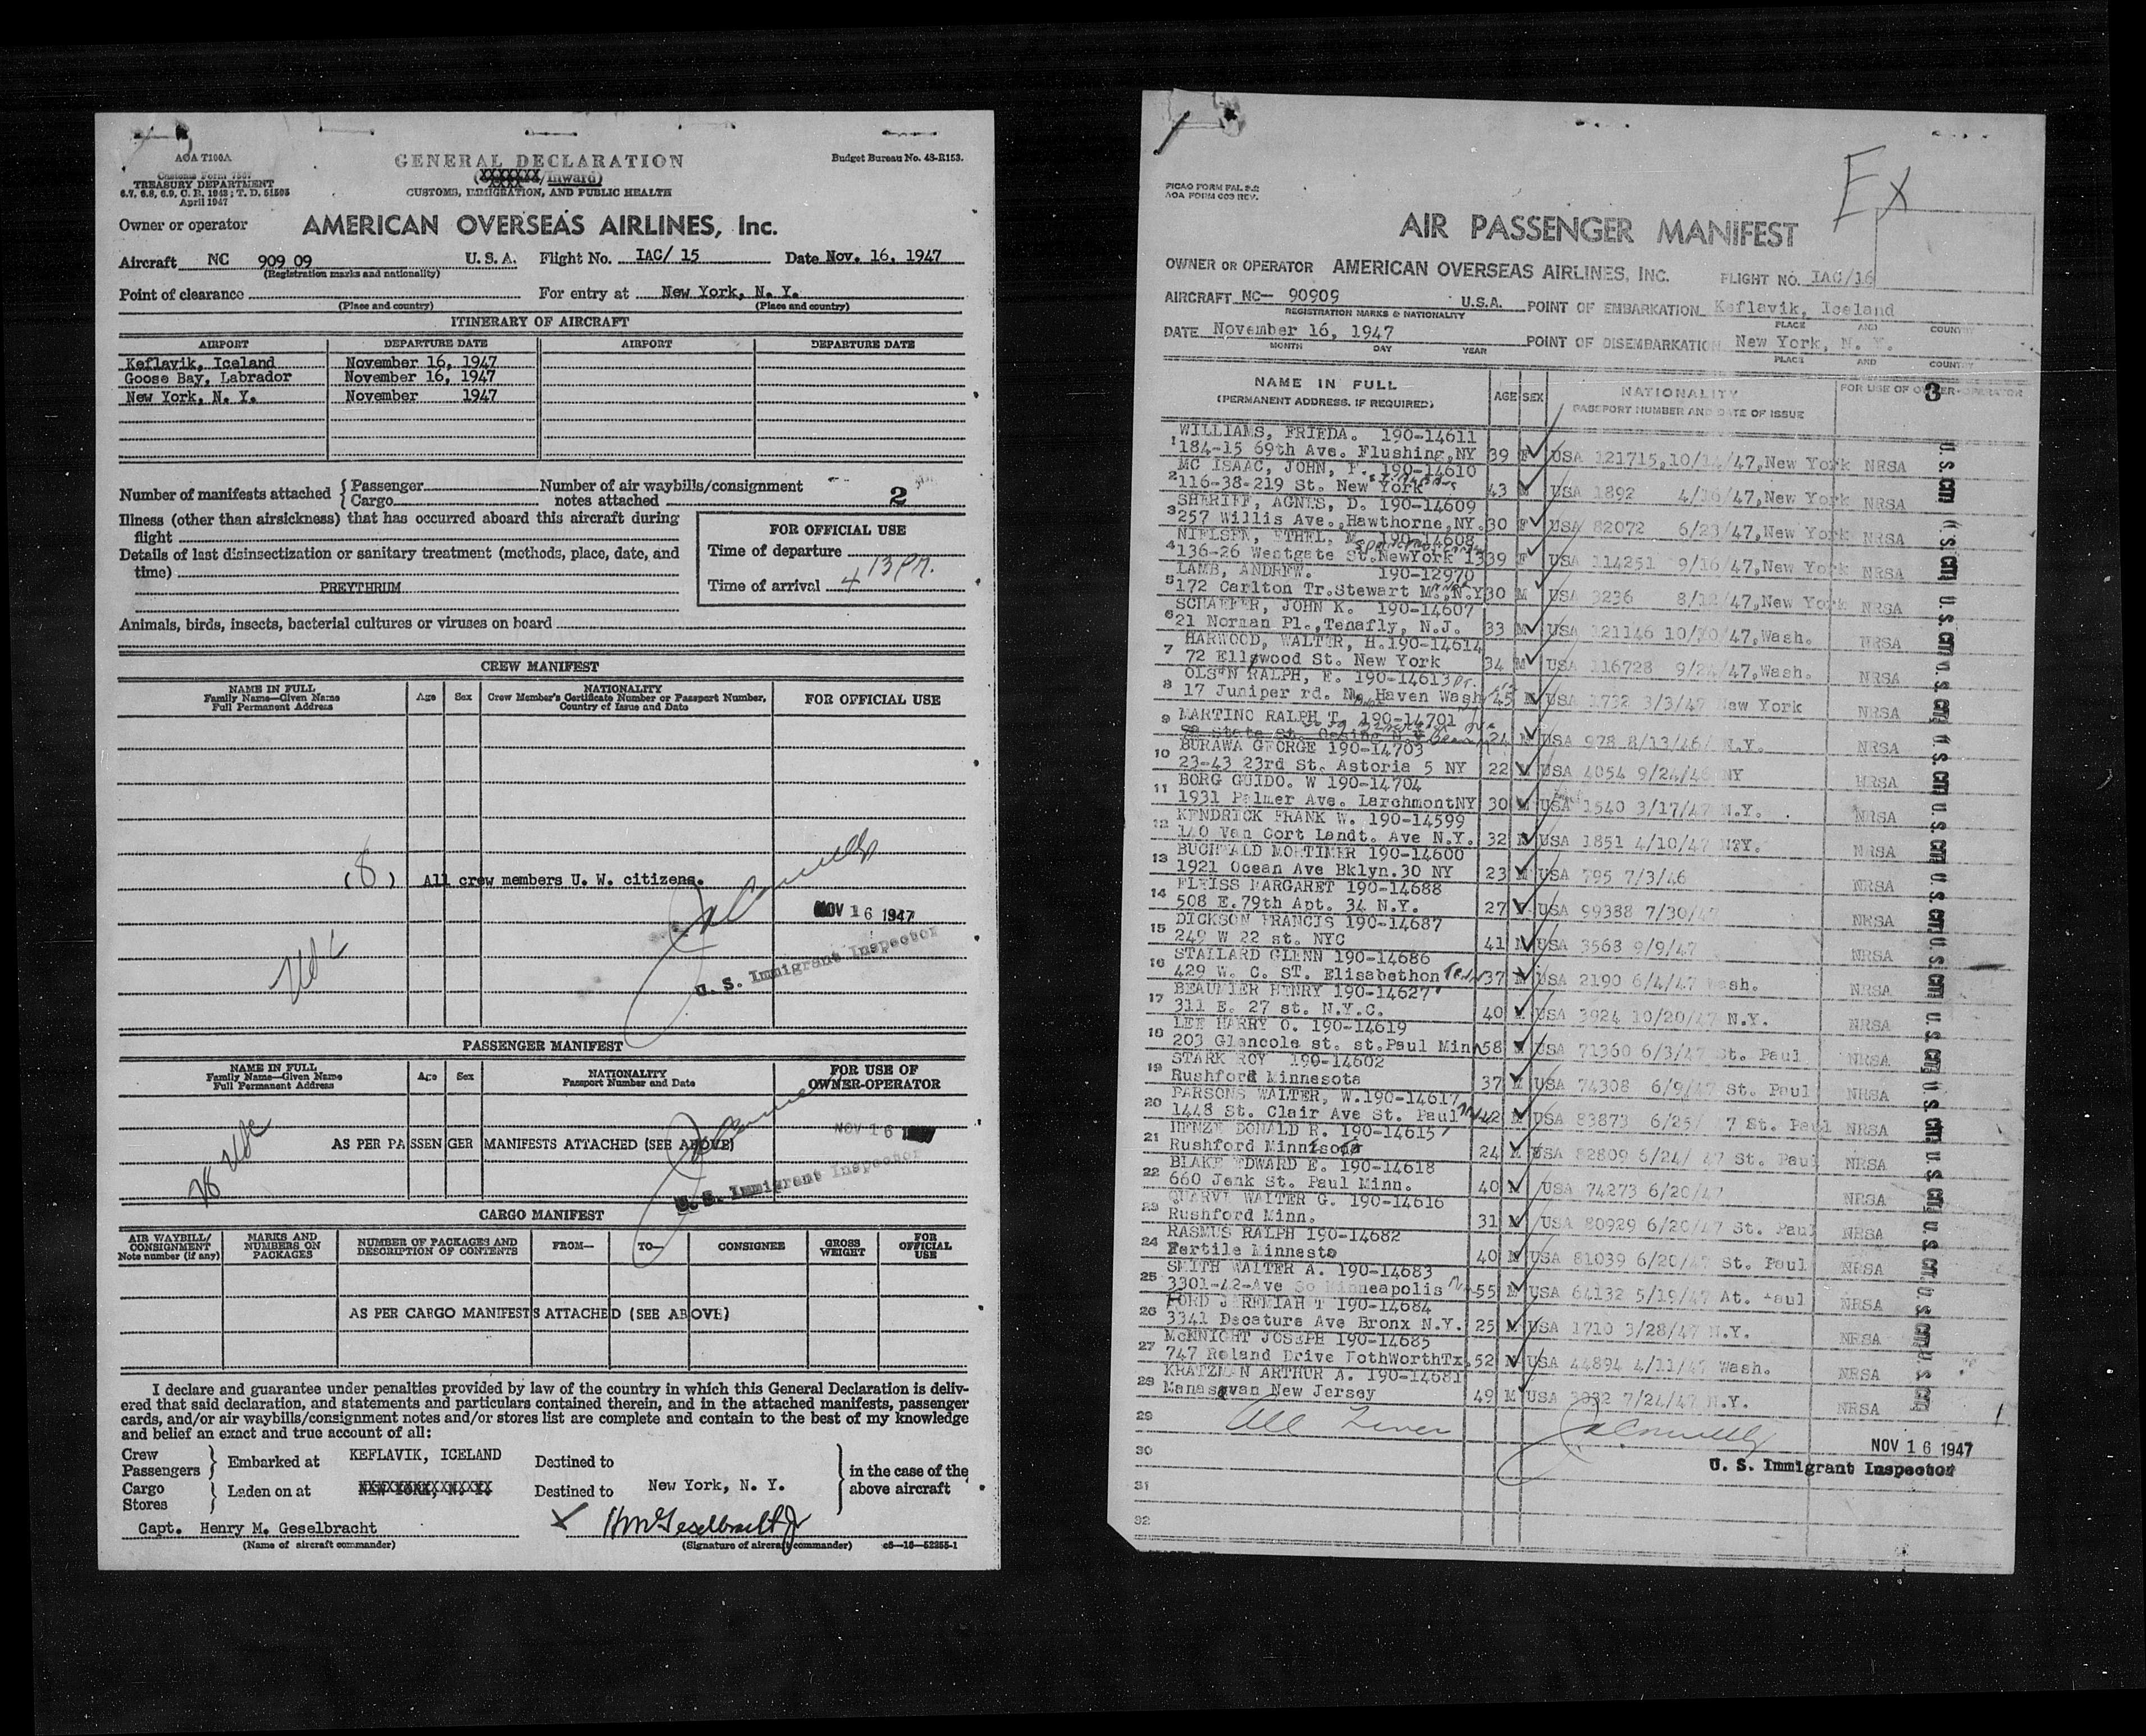 AOA T100A
Customs Form 7507
TREASURY DEPARTMENT
6.7, 6.8, 6.9, C. R. 1943; T. D. 51595
April 1947
GENERAL DECLARATION
(XXXXXXX/Inward)
XXXX
CUSTOMS, IMMIGRATION, AND PUBLIC HEALTH
Budget Bureau No. 48-R153.
Owner or operator AMERICAN OVERSEAS AIRLINES, Inc.
Aircraft NC 909 09 U. S. A. Flight No. IAC/ 15 Date Nov. 16, 1947
(Registration marks and nationality)
Point of clearance For entry at New York, N. Y.
(Place and country) (Place and country)
ITINERARY OF AIRCRAFT
AIRPORT DEPARTURE DATE AIRPORT DEPARTURE DATE
Keflavik, Iceland November 16, 1947
Goose Bay, Labrador November 16, 1947
New York, N. Y. November 1947
Number of manifests attached { Passenger Number of air waybills/consignment
Cargo notes attached 2
Illness (other than airsickness) that has occurred aboard this aircraft during
flight
Details of last disinsectization or sanitary treatment (methods, place, date, and
time)
PREYTHRUM
FOR OFFICIAL USE
Time of departure
Time of arrival 4 13 PM.
Animals, birds, insects, bacterial cultures or viruses on board
CREW MANIFEST
NAME IN FULL
Family Name—Given Name
Full Permanent Address
Age Sex
NATIONALITY
Crew Member's Certificate Number or Passport Number,
Country of Issue and Date
FOR OFFICIAL USE
(8) All crew members U. W. citizens.
NOV 16 1947
U. S. Immigrant Inspector
USC
PASSENGER MANIFEST
NAME IN FULL
Family Name—Given Name
Full Permanent Address
Age Sex
NATIONALITY
Passport Number and Date
FOR USE OF
OWNER-OPERATOR
28 USC
AS PER PASSENGER MANIFESTS ATTACHED (SEE ABOVE)
NOV 16
U. S. Immigrant Inspector
CARGO MANIFEST
AIR WAYBILL/
CONSIGNMENT
Note number (if any)
MARKS AND
NUMBERS ON
PACKAGES
NUMBER OF PACKAGES AND
DESCRIPTION OF CONTENTS
FROM— TO— CONSIGNEE
GROSS
WEIGHT
FOR
OFFICIAL
USE
AS PER CARGO MANIFESTS ATTACHED (SEE ABOVE)
I declare and guarantee under penalties provided by law of the country in which this General Declaration is deliv-
ered that said declaration, and statements and particulars contained therein, and in the attached manifests, passenger
cards, and/or air waybills/consignment notes and/or stores list are complete and contain to the best of my knowledge
and belief an exact and true account of all:
Crew
Passengers } Embarked at KEFLAVIK, ICELAND Destined to
Cargo
Stores } Laden on at Destined to New York, N. Y.
in the case of the
above aircraft
Capt. Henry M. Geselbracht HM Geselbracht Jr
(Name of aircraft commander) (Signature of aircraft commander) c6—16—52255-1
PICAO FORM FAL 2.2
AOA FORM 603 REV.
EX
AIR PASSENGER MANIFEST
OWNER OR OPERATOR AMERICAN OVERSEAS AIRLINES, INC. FLIGHT NO. IAC/16
AIRCRAFT NC— 90909 U.S.A. POINT OF EMBARKATION Keflavik, Iceland
REGISTRATION MARKS & NATIONALITY PLACE AND COUNTRY
DATE November 16, 1947 POINT OF DISEMBARKATION New York, N. Y.
MONTH DAY YEAR PLACE AND COUNTRY
NAME IN FULL
(PERMANENT ADDRESS, IF REQUIRED)
AGE SEX
NATIONALITY
PASSPORT NUMBER AND DATE OF ISSUE
FOR USE OF OWNER-OPERATOR
3
WILLIAMS, FRIEDA. 190-14611
1 184-15 69th Ave. Flushing,NY 39 F USA 121715,10/14/47,New York NRSA
MC ISAAC, JOHN, F. 190-14610
2 116-38-219 St. New York 43 M USA 1892 4/16/47,New York NRSA
SHERIFF, AGNES, D. 190-14609
3 257 Willis Ave.,Hawthorne,NY. 30 F USA 82072 6/23/47,New York NRSA
NIELSEN, ETHEL, M. 190-14608
4 136-26 Westgate St.NewYork 13 39 F USA 114251 9/16/47,New York NRSA
LAMB, ANDREW. 190-12970
5 172 Carlton Tr.Stewart M.,N.Y 30 M USA 3236 8/12/47,New York NRSA
SCHAEFER, JOHN K. 190-14607
6 21 Norman Pl.,Tenafly, N.J. 33 M USA 121146 10/10/47,Wash. NRSA
HARWOOD, WALTER, H.190-14614
7 72 Ellswood St. New York 34 M USA 116728 9/24/47,Wash. NRSA
OLSEN RALPH, E. 190-14613
8 17 Juniper rd. No Haven Wash 45 M USA 1732 3/3/47 New York NRSA
MARTINO RALPH T. 190-14701
9 24 M USA 978 8/13/46 N.Y. NRSA
BURAWA GEORGE 190-14703
10 23-43 23rd St. Astoria 5 NY 22 M USA 4054 9/24/46 NY NRSA
BORG GUIDO. W 190-14704
11 1931 Palmer Ave. LarchmontNY 30 M USA 1540 3/17/47 N.Y. NRSA
KENDRICK FRANK W. 190-14599
12 140 Van Cort Landt. Ave N.Y. 32 M USA 1851 4/10/47 N?Y. NRSA
BUCHWALD MORTIMER 190-14600
13 1921 Ocean Ave Bklyn.30 NY 23 M USA 795 7/3/46 NRSA
FLEISS MARGARET 190-14688
14 508 E.79th Apt. 34 N.Y. 27 USA 99388 7/30/47 NRSA
DICKSON FRANCIS 190-14687
15 249 W 22 st. NYC 41 M USA 3568 9/9/47 NRSA
STALLARD GLENN 190-14686
16 429 W. C. ST. Elisabethon Tenn 37 M USA 2190 6/4/47 Wash. NRSA
BEAUMIER HENRY 190-14627
17 311 E. 27 st. N.Y.C. 40 M USA 3924 10/20/47 N.Y. NRSA
LEE HARRY O. 190-14619
18 203 Glencole st. st.Paul Minn 58 M USA 71360 6/3/47 St. Paul NRSA
STARK ROY 190-14602
19 Rushford Minnesota 37 M USA 74308 6/9/47 St. Paul NRSA
PARSONS WALTER, W.190-14617
20 1448 St. Clair Ave St. Paul 42 M USA 83873 6/25/ 7 St. Paul NRSA
HENZE DONALD R. 190-14615
21 Rushford Minnisota 24 M USA 82809 6/24/ 47 St. Paul NRSA
BLAKE EDWARD E. 190-14618
22 660 Jenk St. Paul Minn. 40 M USA 74273 6/20/47 NRSA
QUARVE WALTER G. 190-14616
23 Rushford Minn. 31 M USA 80929 6/20/47 St. Paul NRSA
RASMUS RALPH 190-14682
24 Fertile Minnesto 40 M USA 81039 6/20/47 St. Paul NRSA
SMITH WALTER A. 190-14683
25 3301-42-Ave So Minneapolis 55 M USA 64132 5/19/47 At. Paul NRSA
FORD JEREMIAH T 190-14684
26 3341 Decature Ave Bronx N.Y. 25 M USA 1710 3/28/47 N.Y. NRSA
McKNIGHT JOSEPH 190-14685
27 747 Roland Drive FothWorthTx. 52 M USA 44894 4/11/47 Wash. NRSA
KRATZMAN ARTHUR A. 190-14681
28 Manasqvan New Jersey 49 M USA 3032 7/24/47 N.Y. NRSA
29
30
31
32
NOV 16 1947
U. S. Immigrant Inspector